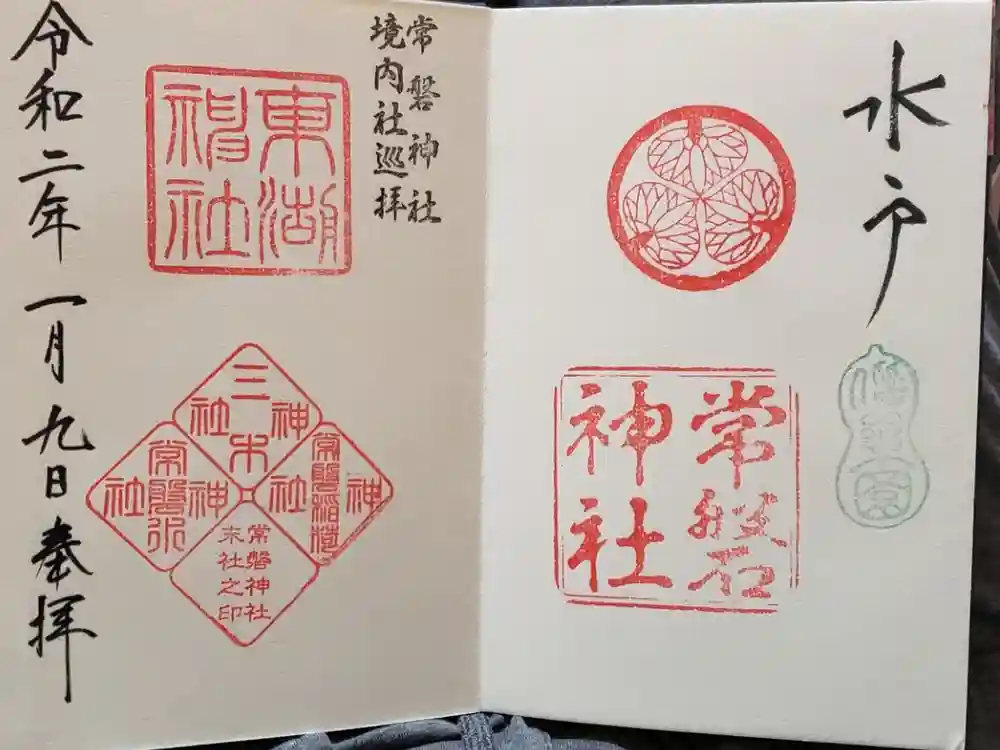 水戸
偕樂園
常磐
神社
常磐神社
境内社巡拝
東湖
神社
三木
神社
常磐稲荷
神社
常磐
神社
常磐神社
末社之印
令和二年一月九日奉拝